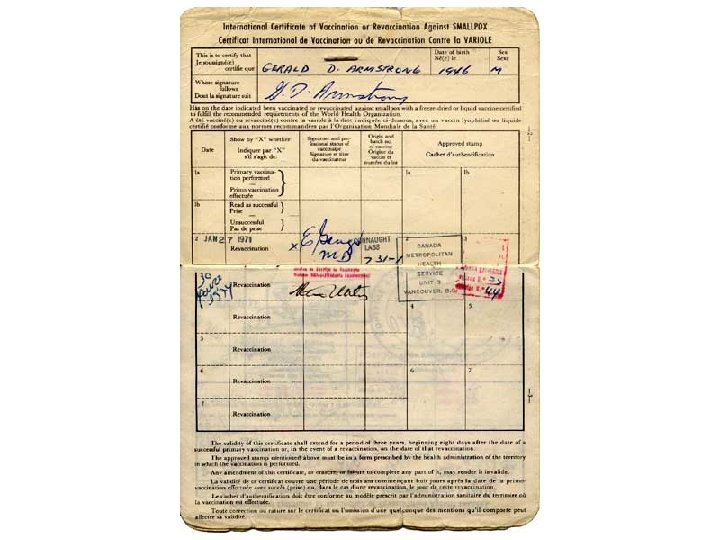 International Certificate of Vaccination or Revaccination Against SMALLPOX
Certificat International de Vaccination ou de Revaccination Contre la VARIOLE
This is to certify that
Je soussigné(e)
certifie que
GERALD D. ARMSTRONG
Date of birth
Né(e) le
1946
Sex
Sexe
M
Whose signature
follows
Dont la signature suit
G. D. Armstrong
Has on the date indicated been vaccinated or revaccinated against smallpox with a freeze-dried or liquid vaccine certified
to fulfil the recommended requirements of the World Health Organization.
A été vacciné(e) ou revacciné(e) contre la variole à la date indiquée ci-dessous, avec un vaccin lyophilisé ou liquide
certifié conforme aux normes recommandées par l'Organisation Mondiale de la Santé.
Date
Show by "X" whether
Indiquer par "X"
s'il s'agit de
Signature and professional status of
vaccinator
Signature et titre
du vaccinateur
Origin and
batch no.
of vaccine
Origine du
vaccin et
numéro du lot
Approved stamp
Cachet d'authentification
1a
Primary vaccination performed
Primovaccination
effectuée
1a
1b
1b
Read as successful
Prise
Unsuccessful
Pas de prise
2
JAN 27 1971
Revaccination
x
MD
CONNAUGHT
LABS
731-1
2
CANADA
METROPOLITAN
HEALTH
SERVICE
UNIT 3
VANCOUVER, B.C.
3
Revaccination
4
5
Revaccination
Revaccination
6
7
Revaccination
Revaccination
The validity of this certificate shall extend for a period of three years, beginning eight days after the date of a
successful primary vaccination or, in the event of a revaccination, on the date of that revaccination.
The approved stamp mentioned above must be in a form prescribed by the health administration of the territory
in which the vaccination is performed.
Any amendment of this certificate, or erasure, or failure to complete any part of it, may render it invalid.
La validité de ce certificat couvre une période de trois ans commençant huit jours après la date de la primo-
vaccination effectuée avec succès (prise) ou, dans le cas d'une revaccination, le jour de cette revaccination.
Le cachet d'authentification doit être conforme au modèle prescrit par l'administration sanitaire du territoire où
la vaccination est effectuée.
Toute correction ou rature sur le certificat ou l'omission d'une quelconque des mentions qu'il comporte peut
affecter sa validité.